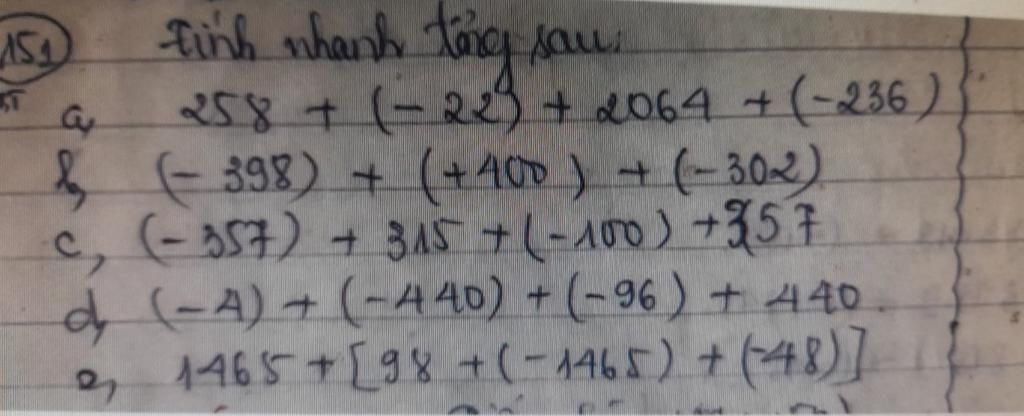 151) Tính nhanh tổng sau:
a, 258 + (-22) + 2064 + (-236)
b, (-398) + (+400) + (-302)
c, (-357) + 315 + (-100) + 357
d, (-4) + (-440) + (-96) + 440
e, 1465 + [98 + (-1465) + (-48)]